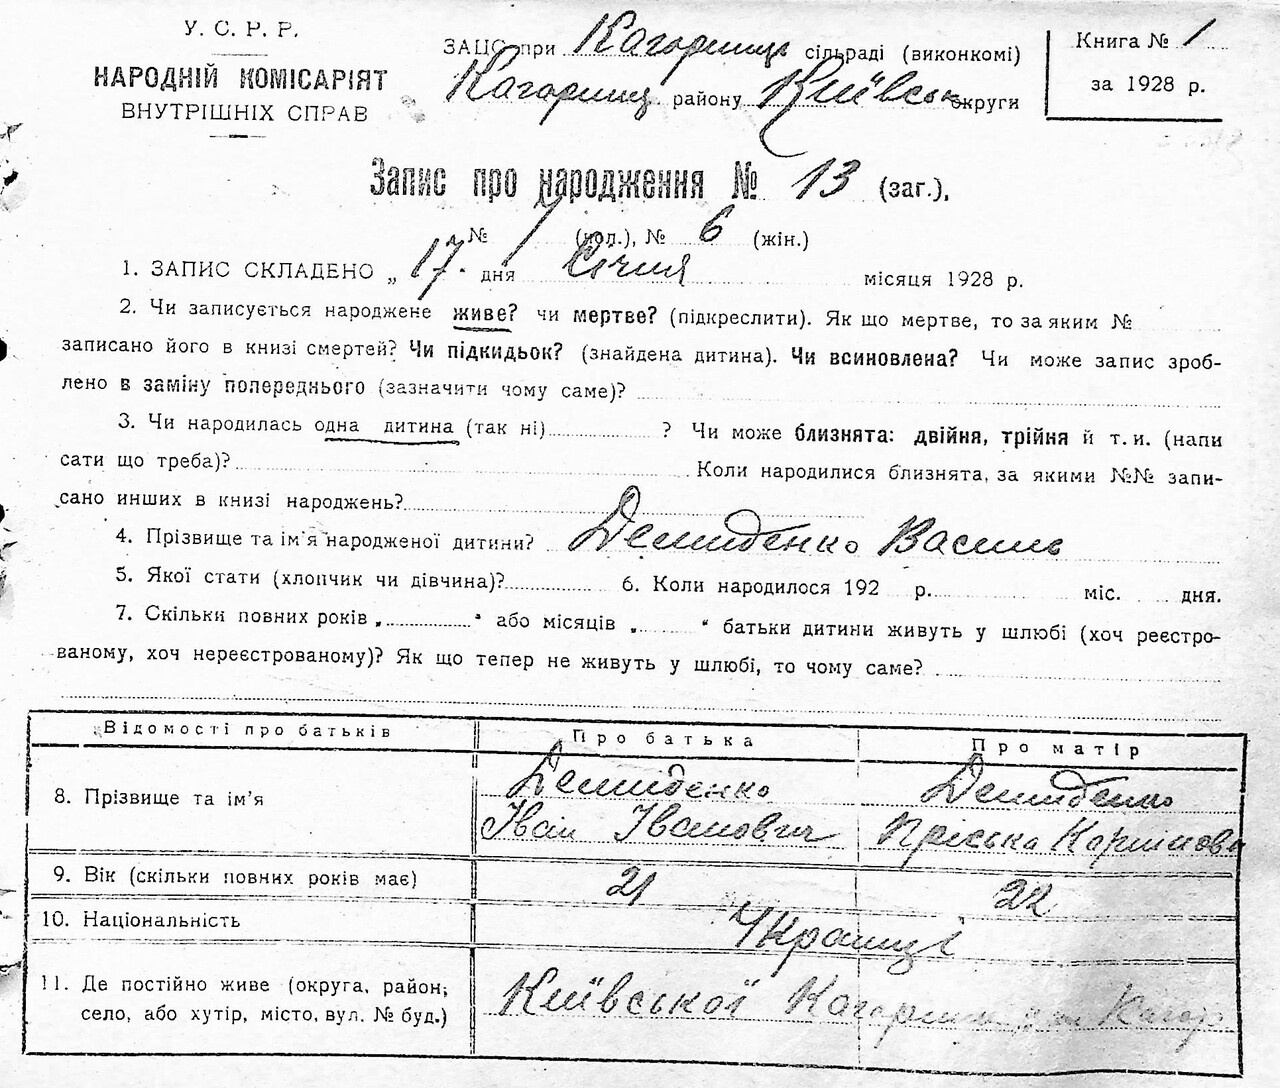 У. С. Р. Р.
НАРОДНІЙ КОМІСАРІЯТ
ВНУТРІШНІХ СПРАВ
ЗАЦС при Кагорлиц. сільраді (виконкомі)
Кагорлиц. району Київськ. округи
Книга № 1
за 1928 р.
Запис про народження № 13 (заг.),
№ 7 (чол.), № 6 (жін.)
1. ЗАПИС СКЛАДЕНО „ 17 " дня Січня місяця 1928 р.
2. Чи записується народжене живе? чи мертве? (підкреслити). Як що мертве, то за яким №
записано його в книзі смертей? Чи підкидьок? (знайдена дитина). Чи всиновлена? Чи може запис зроб-
лено в заміну попереднього (зазначити чому саме)?
3. Чи народилась одна дитина (так ні) ? Чи може близнята: двійня, трійня й т. и. (напи
сати що треба)? Коли народилися близнята, за якими №№ запи-
сано инших в книзі народжень?
4. Прізвище та ім'я народженої дитини? Демиденко Василь
5. Якої стати (хлопчик чи дівчина)? 6. Коли народилося 192 р. міс. дня.
7. Скільки повних років „ " або місяців „ " батьки дитини живуть у шлюбі (хоч реєстро-
ваному, хоч нереєстрованому)? Як що тепер не живуть у шлюбі, то чому саме?
Відомості про батьків Про батька Про матір
8. Прізвище та ім'я Демиденко Іван Іванович Демиденко Пріська
9. Вік (скільки повних років має) 21 22
10. Національність Українці
11. Де постійно живе (округа, район,
село, або хутір, місто, вул. № буд.) Київської Кагорлиц